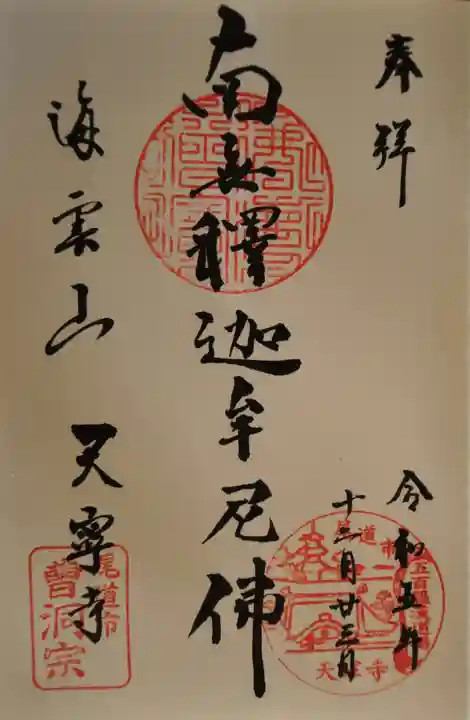 奉拝
令和五年
十二月廿三日
南无釋迦牟尼佛
海雲山 天寧寺
尾道市
曹洞宗
尾道市
天寧寺